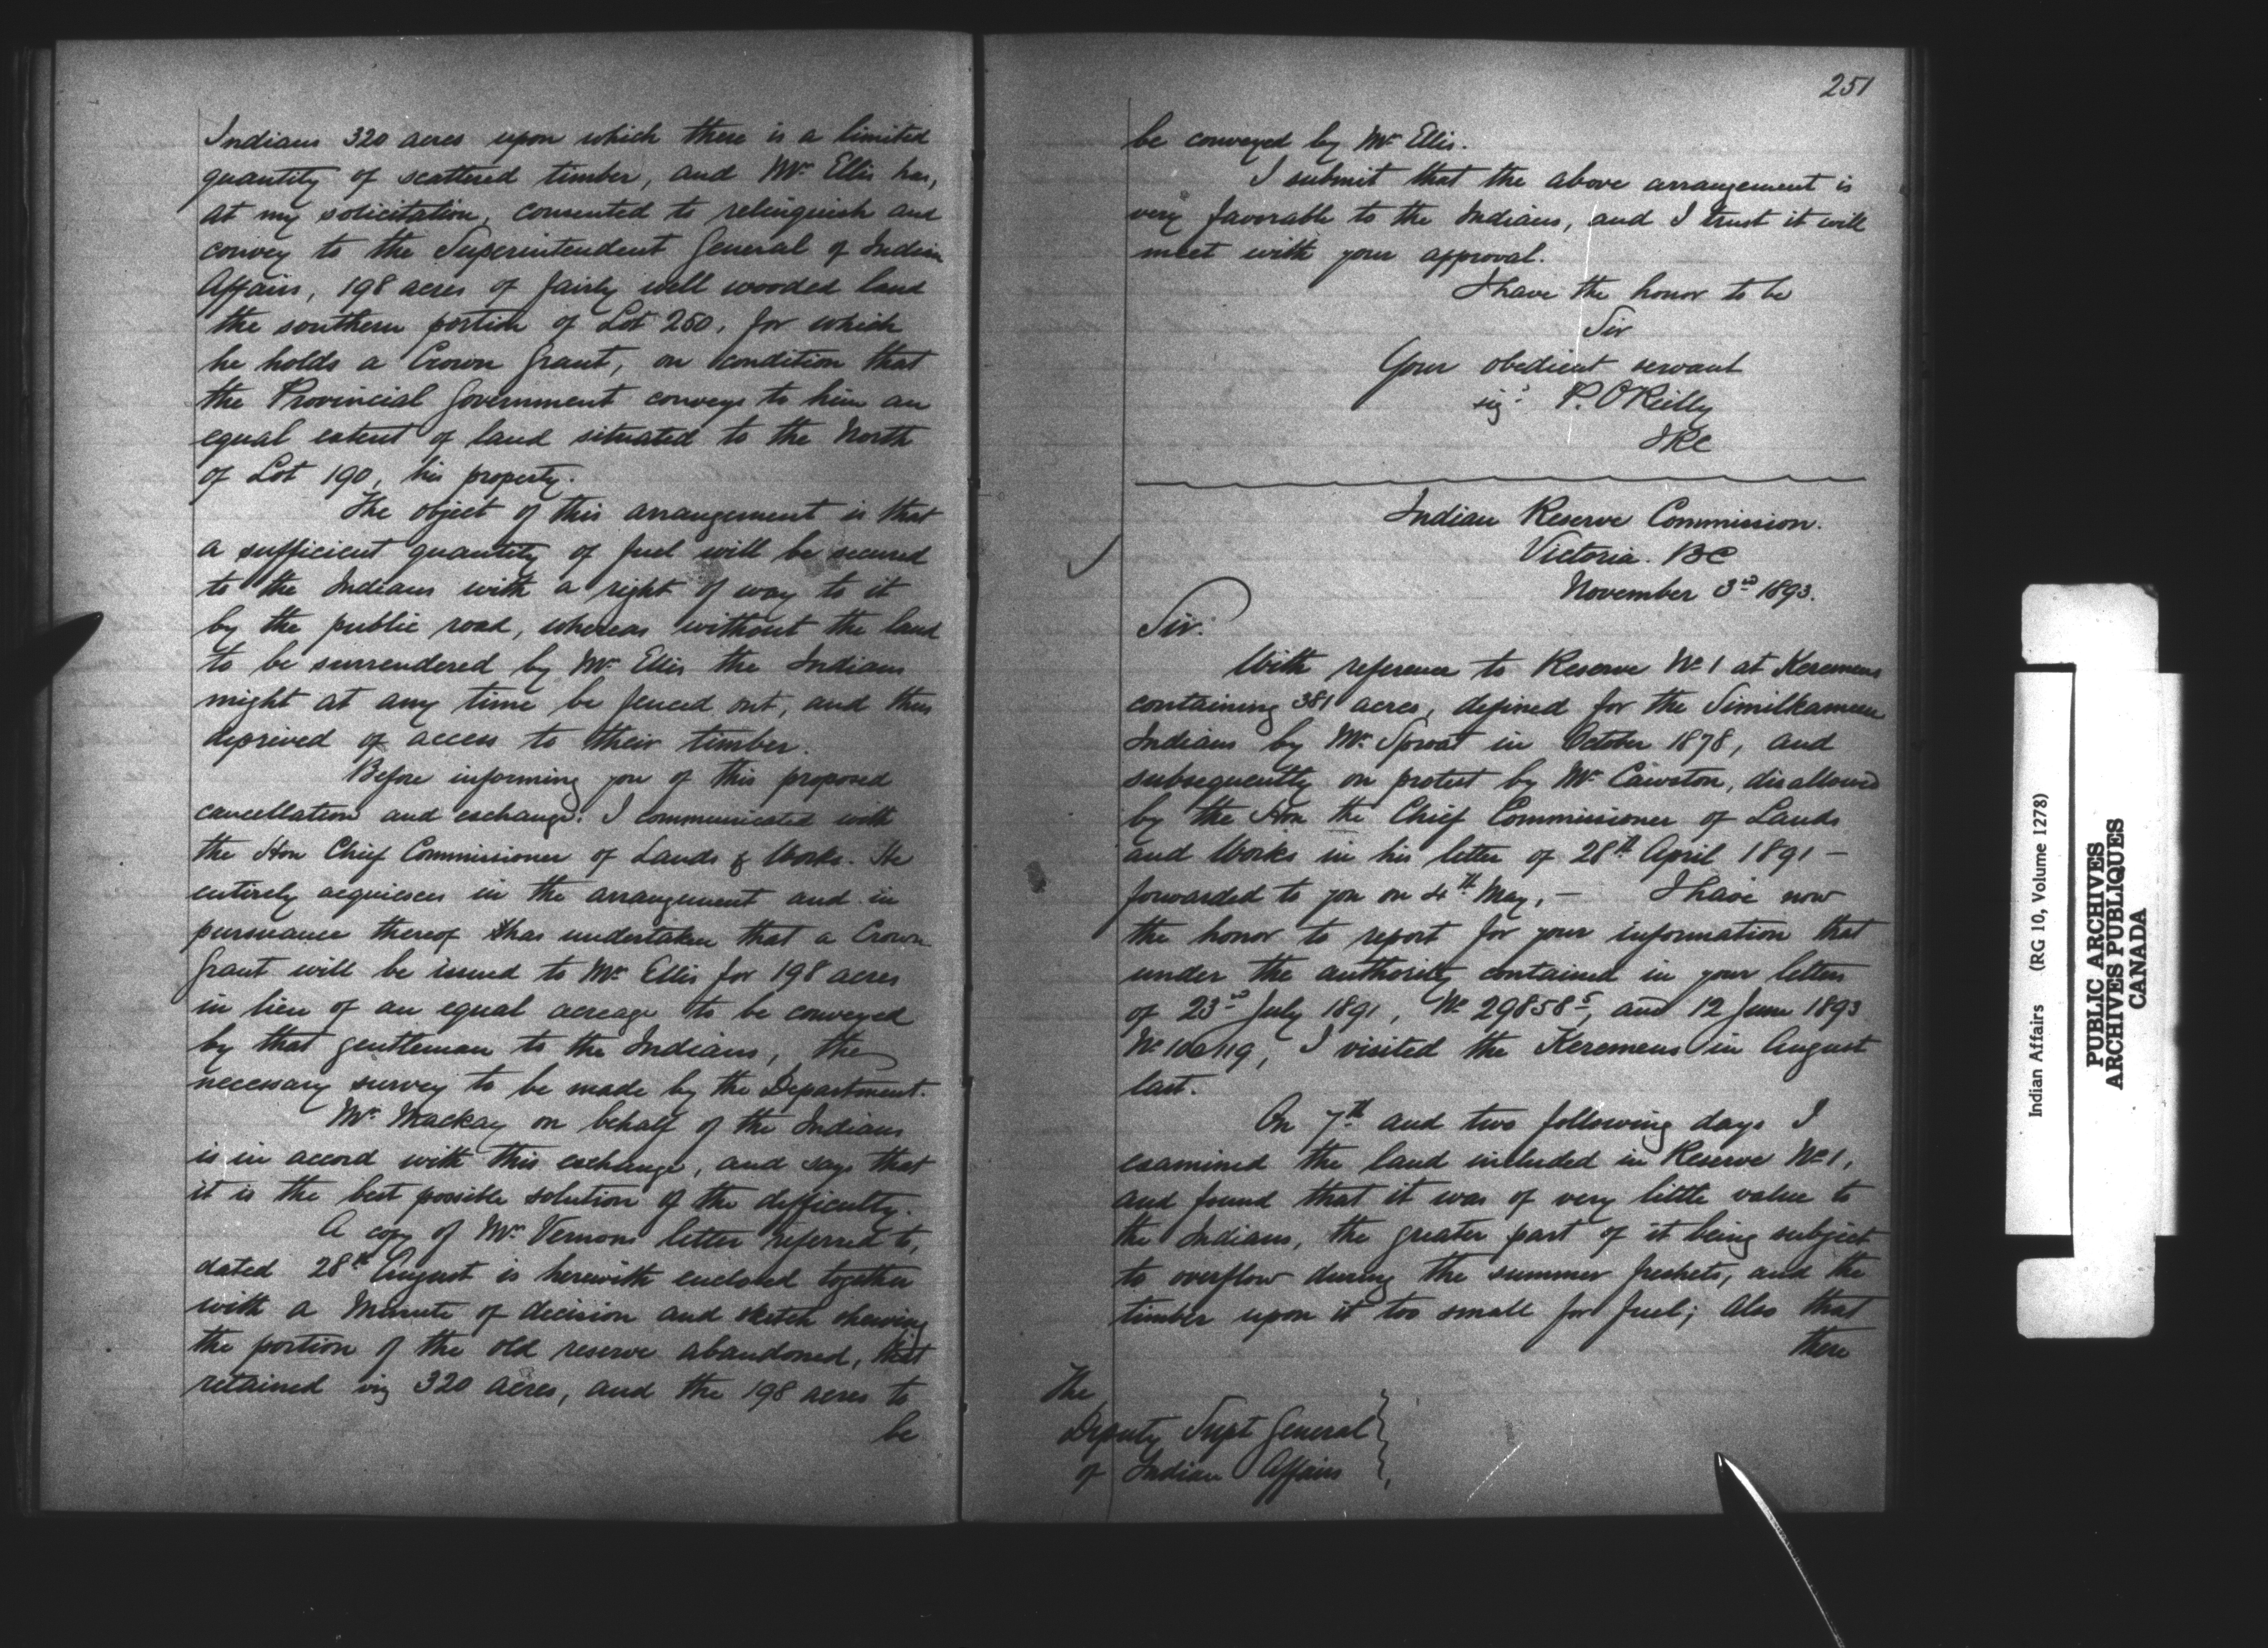 Indians 320 acres upon which there is a limited
quantity of scattered timber, and Mr Ellis has,
at my solicitation, consented to relinquish and
convey to the Superintendent General of Indian
Affairs, 198 acres of fairly well wooded land
the southern portion of Lot 250, for which
he holds a Crown Grant, on condition that
the Provincial Government conveys to him an
equal extent of land situated to the North
of Lot 190, his property.
The object of this arrangement is that
a sufficient quantity of fuel will be secured
to the Indians with a right of way to it
by the public road, whereas without the land
to be surrendered by Mr Ellis the Indians
might at any time be fenced out, and thus
deprived of access to their timber.
Before informing you of this proposed
cancellation and exchange. I communicated with
the Hon Chief Commissioner of Lands & Works. He
entirely acquiesces in the arrangement and in
pursuance thereof has undertaken that a Crown
Grant will be issued to Mr Ellis for 198 acres
in lieu of an equal acreage to be conveyed
by that gentleman to the Indians, the
necessary survey to be made by the Department.
Mr Mackay on behalf of the Indians
is in accord with this exchange, and says that
it is the best possible solution of the difficulty.
A copy of Mr Vernons letter referred to,
dated 28th August is herewith enclosed together
with a Minute of decision and sketch shewing
the portion of the old reserve abandoned, that
retained viz 320 acres, and the 198 acres to
be
251
be conveyed by Mr Ellis.
I submit that the above arrangement is
very favorable to the Indians, and I trust it will
meet with your approval.
I have the honor to be
Sir
Your obedient servant
sigd P. O'Reilly
IRC
Indian Reserve Commission.
Victoria. BC
November 3rd 1893.
Sir.
With reference to Reserve No 1 at Keremeus
containing 381 acres, defined for the Similkameen
Indians by Mr Sproat in October 1878, and
subsequently on protest by Mr Cawston, disallowed
by the Hon the Chief Commissioner of Lands
and Works in his letter of 28th April 1891 –
forwarded to you on 4th May, – I have now
the honor to report for your information that
under the authority contained in your letters
of 23rd July 1891, No 29858 5, and 12 June 1893
No I visited the Keremeus in August
last.
On 7th and two following days I
examined the land included in Reserve No 1,
and found that it was of very little value to
the Indians, the greater part of it being subject
to overflow during the summer freshets, and the
timber upon it too small for fuel; also that
there
The
Deputy Supt General
of Indian Affairs
Indian Affairs (RG 10, Volume 1278)
PUBLIC ARCHIVES
ARCHIVES PUBLIQUES
CANADA